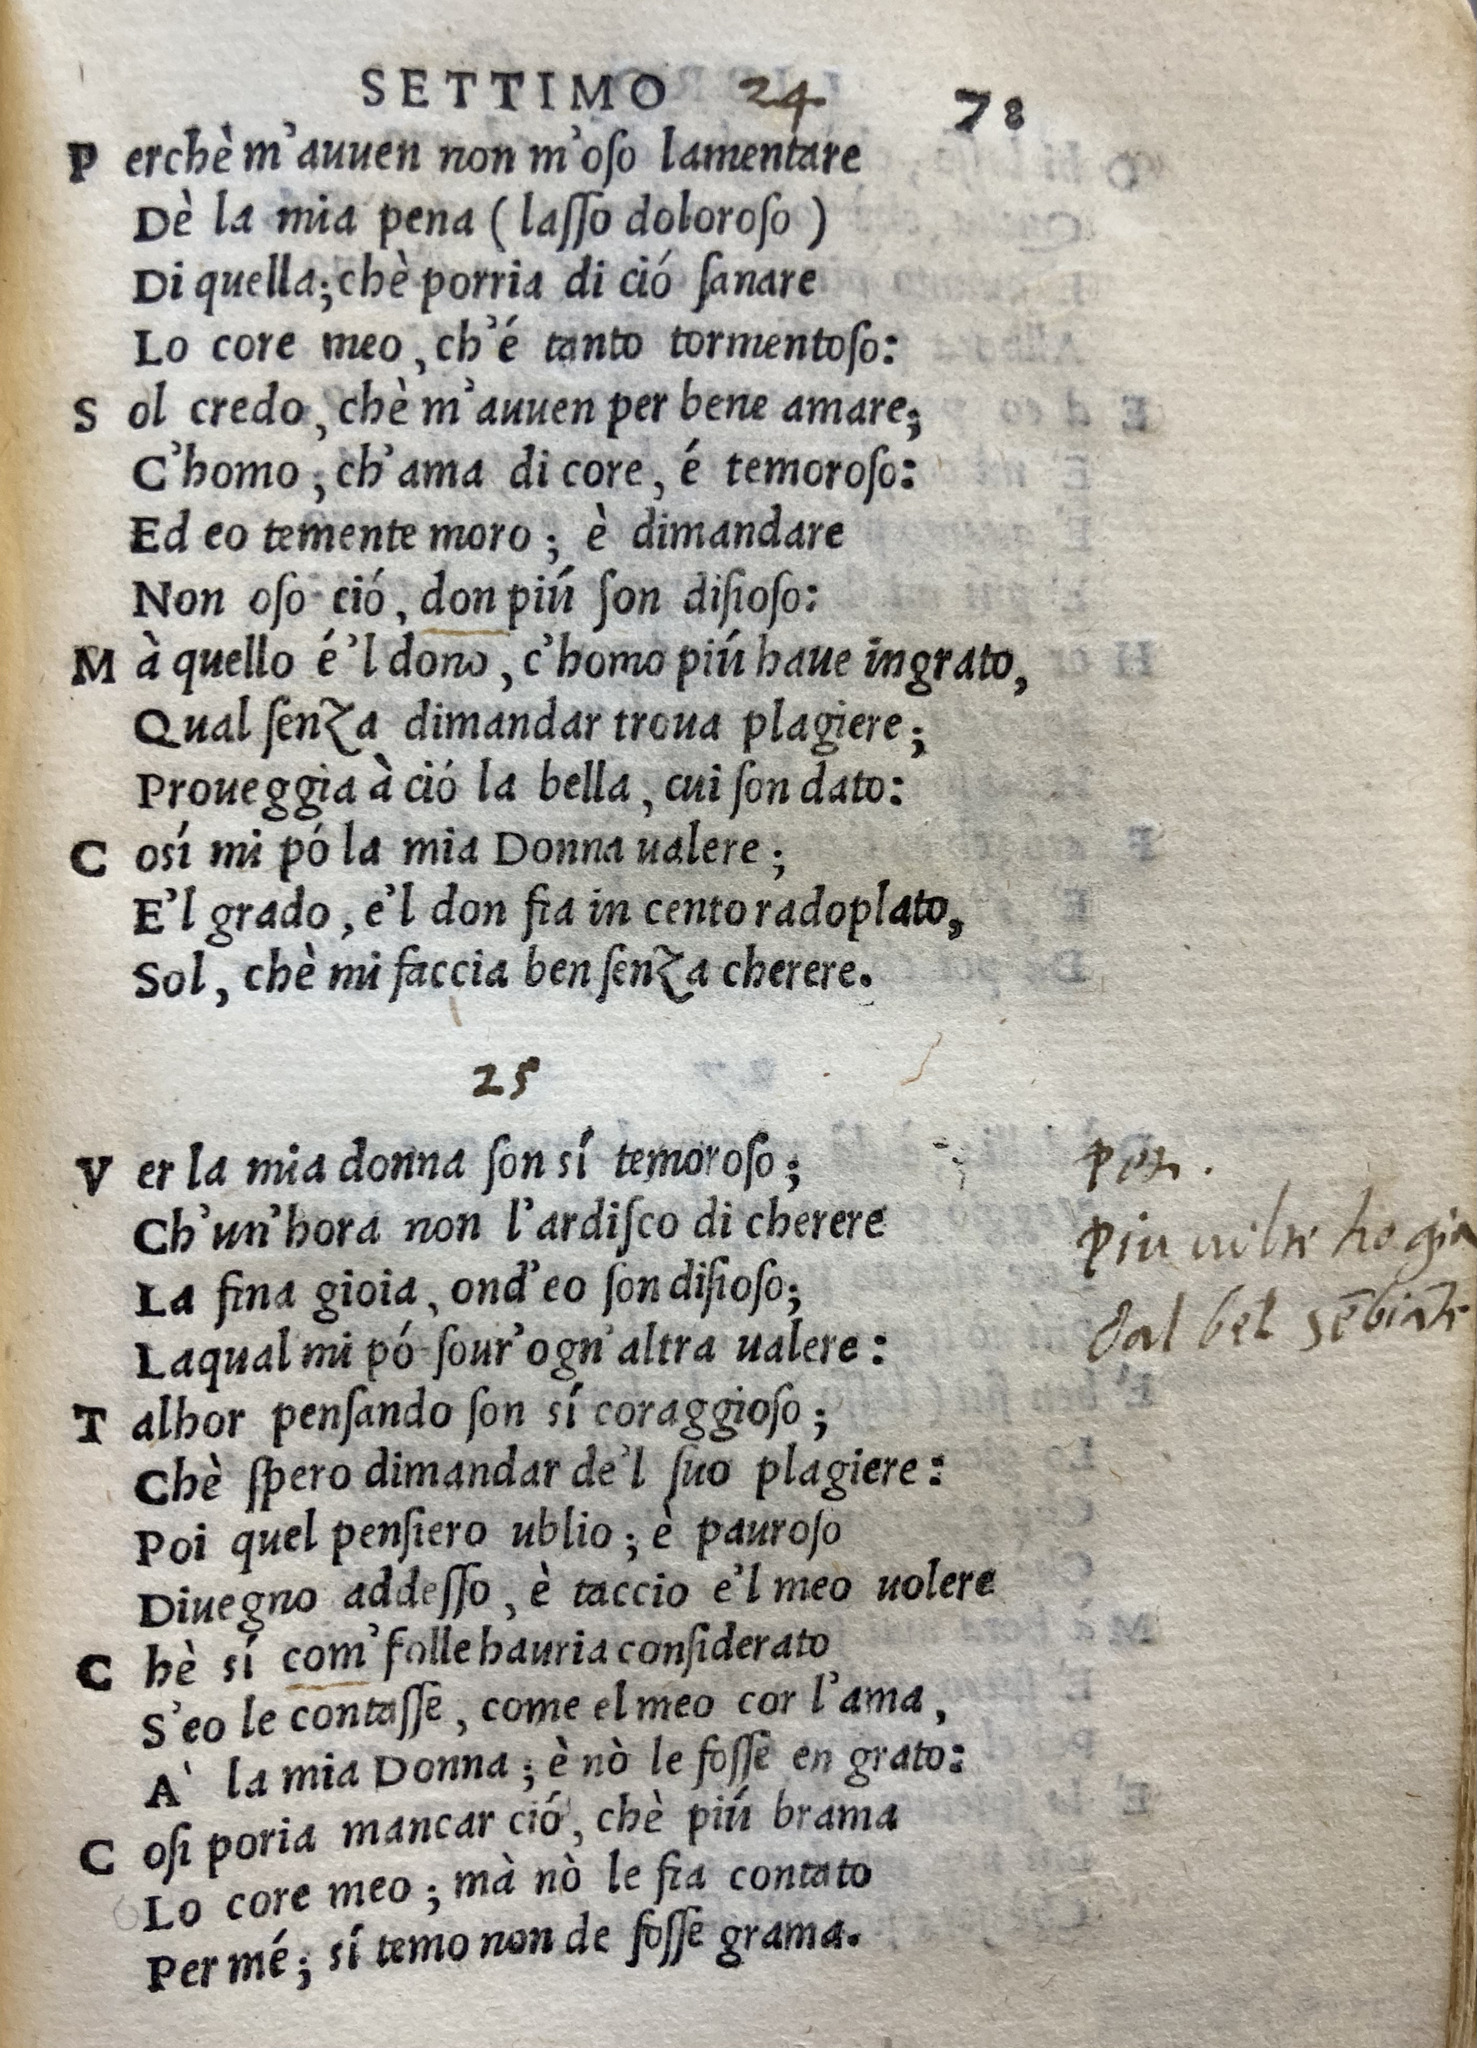 SETTIMO 24 78
Perchè m'auuen non m'oſo lamentare
Dè la mia pena (laſſo doloroſo)
Di quella; chè porria di ció ſanare
Lo core meo, ch'é tanto tormentoſo:
Sol credo, chè m'auuen per bene amare;
C'homo, ch'ama di core, é temoroſo:
Ed eo temente moro; è dimandare
Non oſo ció, don piú ſon diſioſo:
Mà quello é 'l dono, c'homo piú haue ingrato,
Qual ſenza dimandar troua plagiere;
Proueggia à ció la bella, cui ſon dato:
Cosí mi pó la mia Donna ualere;
E'l grado, e'l don fia in cento radoplato,
Sol, chè mi faccia ben ſenza cherere.
25
Ver la mia donna ſon sí temoroſo;
Ch'un'hora non l'ardiſco di cherere
La fina gioia, ond'eo ſon diſioſo;
Laqual mi pó ſour'ogn'altra ualere:
Talhor penſando ſon sí coraggioſo;
Chè ſpero dimandar de'l ſuo plagiere:
Poi quel penſiero ublio; è pauroſo
Diuegno addeſſo, è taccio e'l meo uolere
Chè sí com' folle hauria conſiderato
S'eo le contaſſe, come el meo cor l'ama,
A' la mia Donna; è nò le foſſe en grato:
Coſi poria mancar ció, chè piú brama
Lo core meo; mà nò le fia contato
Per mé; sí temo non de foſſe grama.
pet.
piu uolte ho gia
dal bel sēbiāte